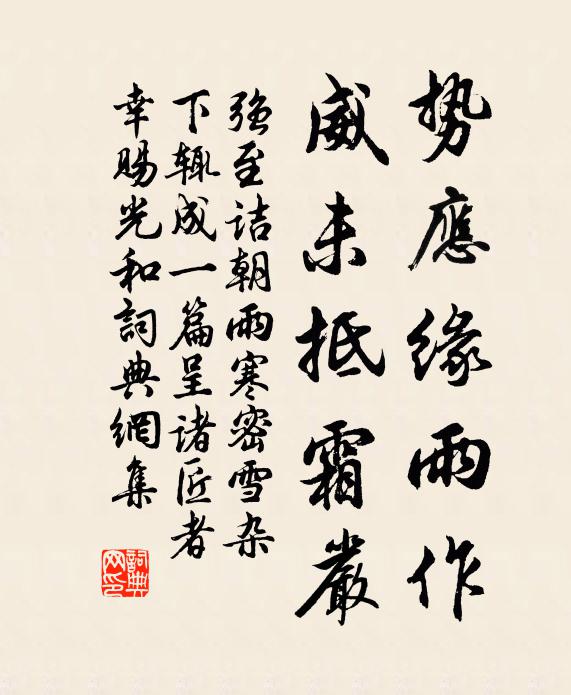 势應緣雨作
威未抵霜嚴
强至詰朝雨寒密雪杂
下輒成一篇呈诸匠者
幸賜光和詞典網集
詞典
网印